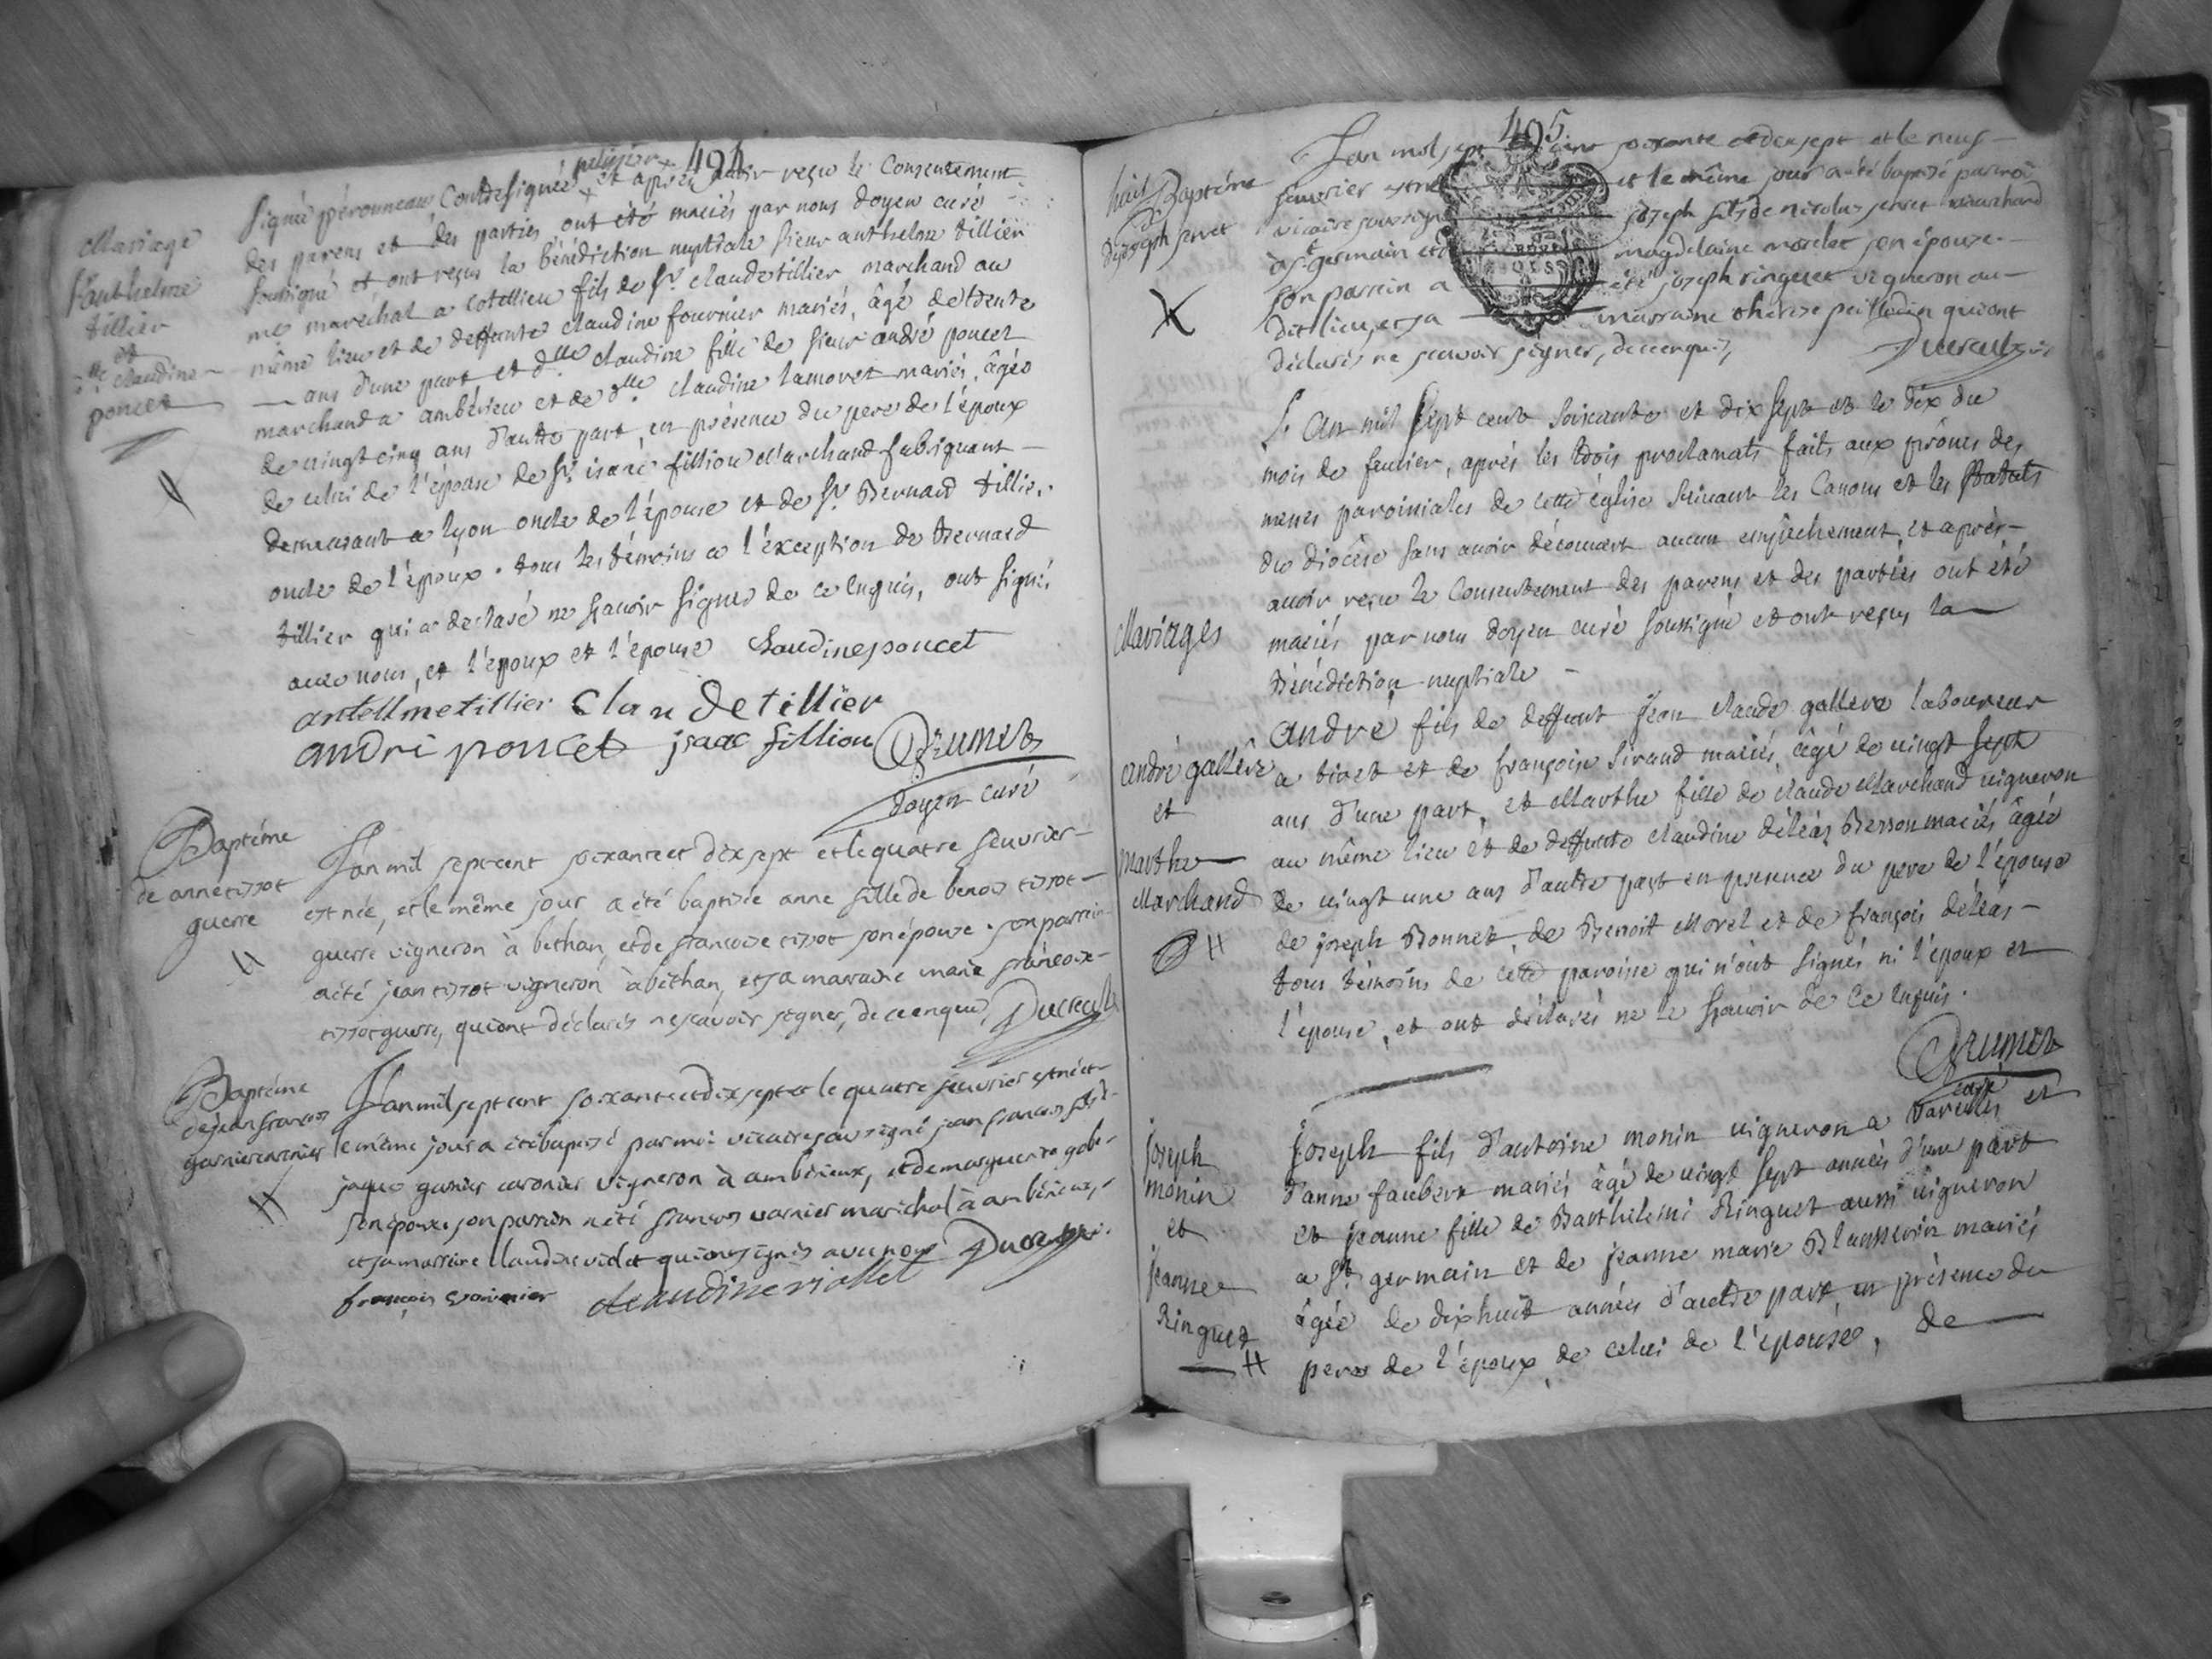 494
pelissier
Signée péronneau Contresignée et après avoir reçu le Consentement
des parens et des parties ont été mariés par nous doyen curé
soussigné et ont reçus la bénédiction nuptiale sieur anthelme tillier
me maréchal a Cotellieu fils de Sr. claude tillier marchand au
même lieu et de deffunte claudine fournier mariés, âgé de trente
ans d'une part et dlle claudine fille de sieur andré poncet
marchand a ambérieu et de dlle claudine lamoret mariés, âgée
de vingt cinq ans d'autre part, en présence du pere de l'époux
de celui de l'épouse de Sr. isaac fillion Marchand fabriquant
demeurant a lyon oncle de l'épouse et de Sr. Bernard tillier
oncle de l'époux. tous les témoins a l'exception de Bernard
tillier qui a declaré ne sçavoir signer de ce enquis, ont signé
avec nous, et l'époux et l'épouse Claudine poncet
antellme tillier Claude tillier
andré poncet isaac fillion Brunet
doyen curé
Mariage
d'anthelme
tillier
et
dlle claudine
poncet
Baptéme
de anne tissot
guerre
L'an mil sept cent soixante et dix sept et le quatre feuvrier
est née, et le même jour a été baptisée anne fille de benoit tissot
guerre vigneron à béthan, et de francoise tissot son épouse. son parrin
a été jean tissot vigneron à béthan, et sa marraine marie francoise
tissot guerre, qui ont déclarés ne scavoir signer, de ce enquis, Ducreult
Baptéme
de jean francois
garnier
L'an mil sept cent soixante et dix sept et le quatre feuvrier est né et
le même jour a été baptisé par moi vicaire soussigné jean francois fils d
jaque garnier vigneron à ambérieux, et de marguerite
son épouse son parrin a été francois varnier marichal à ambérieux,
et sa marreine Claudine violet qui ont signés avec nous Ducreult
françois Claudine viollet
405
huit
Baptéme
de joseph servet
L'an mil sept cent soixante et dix sept et le neuf
feuvrier est né et le même jour a été baptisé par moi
vicaire soussigné joseph fils de nicolas servet marchand
à st germain et d magdelaine morelet son épouse
son parrein a été joseph ringuet vigneron au
dit lieu, et sa marraine thérèse qui ont
déclarés ne scavoir signer, de ce enquis, Ducreult
Mariages
L'an mil sept cent soixante et dix sept et le dix du
mois de feuvrier, après les trois proclamats faits aux prônes des
messes paroissiales de cette église suivant les Canons et les statuts
du diocèse sans avoir découvert aucun empêchement, et après
avoir reçu le Consentement des parens et des parties ont été
mariés par nous doyen curé soussigné et ont reçus la
Bénédiction nuptiale
andré gallere
et
marthe
Marchand
André fils de deffunt jean claude gallere laboureur
a tiret et de françoise Siraud mariés, âgé de vingt sept
ans d'une part, et Marthe fille de claude Marchand vigneron
au même lieu et de deffunte claudine déléaz Besson mariés âgée
de vingt une ans d'autre part en presence du pere de l'épouse
de joseph Bonnet, de Benoit Morel et de françois déléas
tous témoins de cette paroisse qui n'ont signés ni l'époux et
l'épouse, et ont déclarés ne le sçavoir de ce enquis.
Brunet
curé
joseph
monin
et
jeanne
Ringuet
joseph fils d'antoine monin vigneron a Vareilles et
d'anne faubert mariés âgé de vingt sept années d'une part
et jeanne fille de Barthélemi Ringuet aussi vigneron
a St germain et de jeanne marie mariés
âgée de dixhuit années d'autre part en présence du
pere de l'époux de celui de l'épouse, de